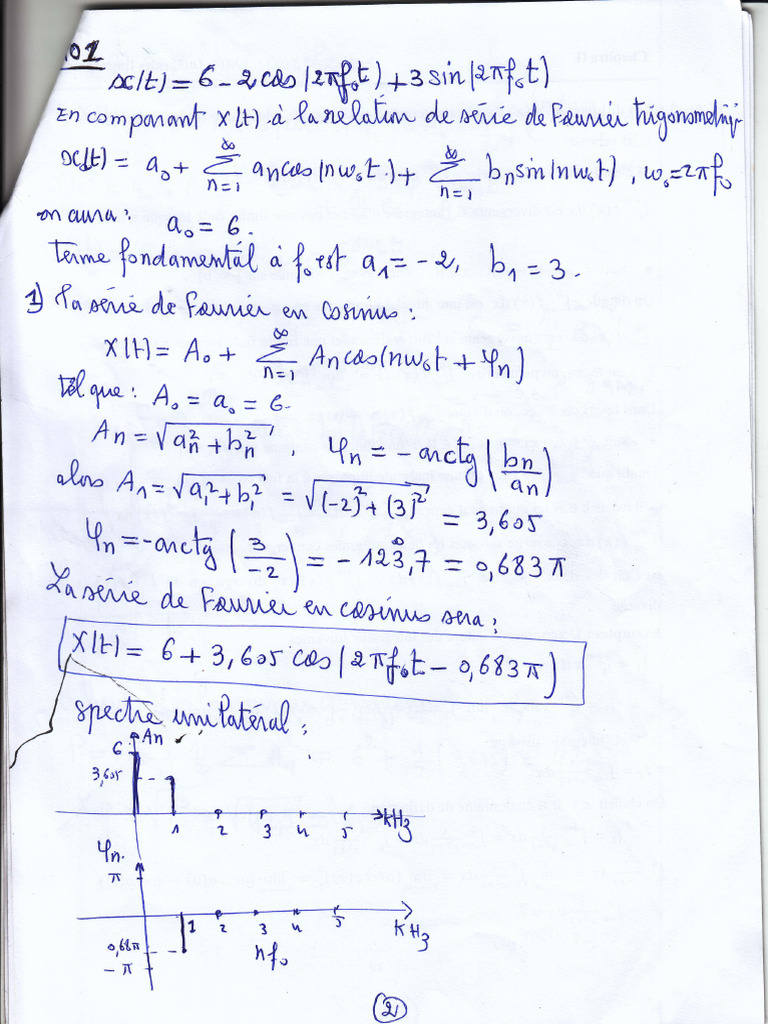 01
x(t) = 6 - 2cos(2πf₀t) + 3sin(2πf₀t)
En comparant x(t) à la relation de série de Fourier trigonométriq
x(t) = a₀ + ∞ Σ n=1 aₙcos(nw₀t) + ∞ Σ n=1 bₙsin(nw₀t), w₀=2πf₀
on aura : a₀ = 6.
terme fondamental à f₀ est a₁ = -2, b₁ = 3.
1) La série de Fourier en cosinus :
x(t) = A₀ + ∞ Σ n=1 Aₙcos(nw₀t + φₙ)
tel que : A₀ = a₀ = 6.
Aₙ = √(aₙ² + bₙ²), φₙ = -arctg(bₙ/aₙ)
alors A₁ = √(a₁² + b₁²) = √((-2)² + (3)²) = 3,605
φₙ = -arctg(3/-2) = -123°,7 = 0,683π
La série de Fourier en cosinus sera :
x(t) = 6 + 3,605 cos(2πf₀t - 0,683π)
spectre unilatéral :
Aₙ
6
3,605
1 2 3 4 5 KHz
φₙ
π
1 2 3 4 5 KHz
0,68π
nf₀
-π
2